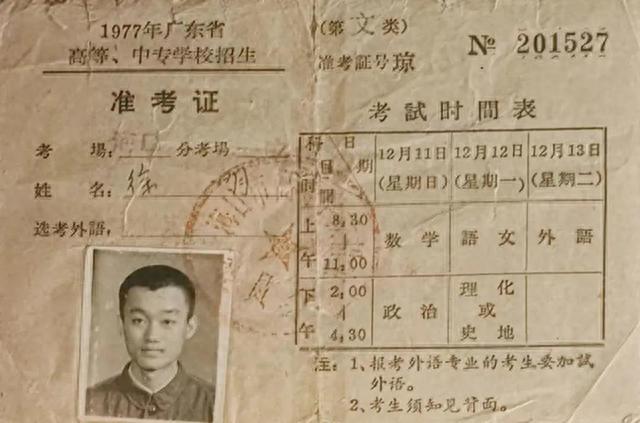 1977年广东省
高等、中专学校招生
准考证
考 場：河口 分考場
姓 名：徐
选考外語：
（第文类）
准考证号琼 № 201527
考試时間表
科目 日期 時間 12月11日（星期日） 12月12日（星期一） 12月13日（星期二）
上午 8,30 11,00 数学 語文 外語
下午 2,00 4,30 政治 理化或史地
注：1、报考外语专业的考生要加試
外语。
2、考生须知见背面。